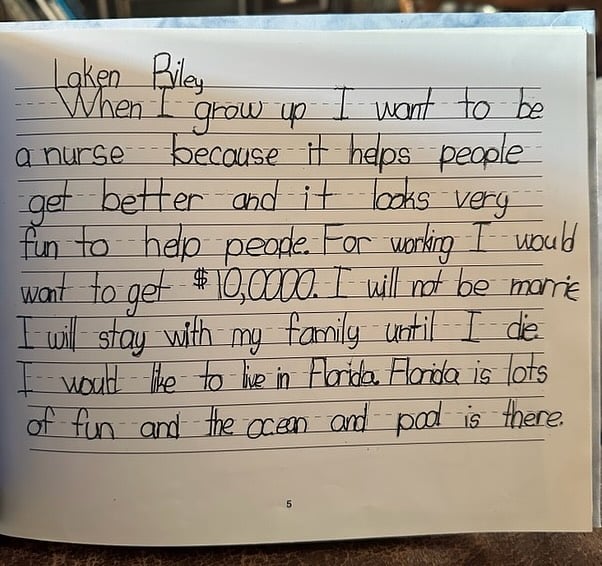 Laken Riley
When I grow up I want to be
a nurse because it helps people
get better and it looks very
fun to help people. For working I would
want to get $10,0000. I will not be marrie
I will stay with my family until I die.
I would like to live in Florida. Florida is lots
of fun and the ocean and pool is there.
5